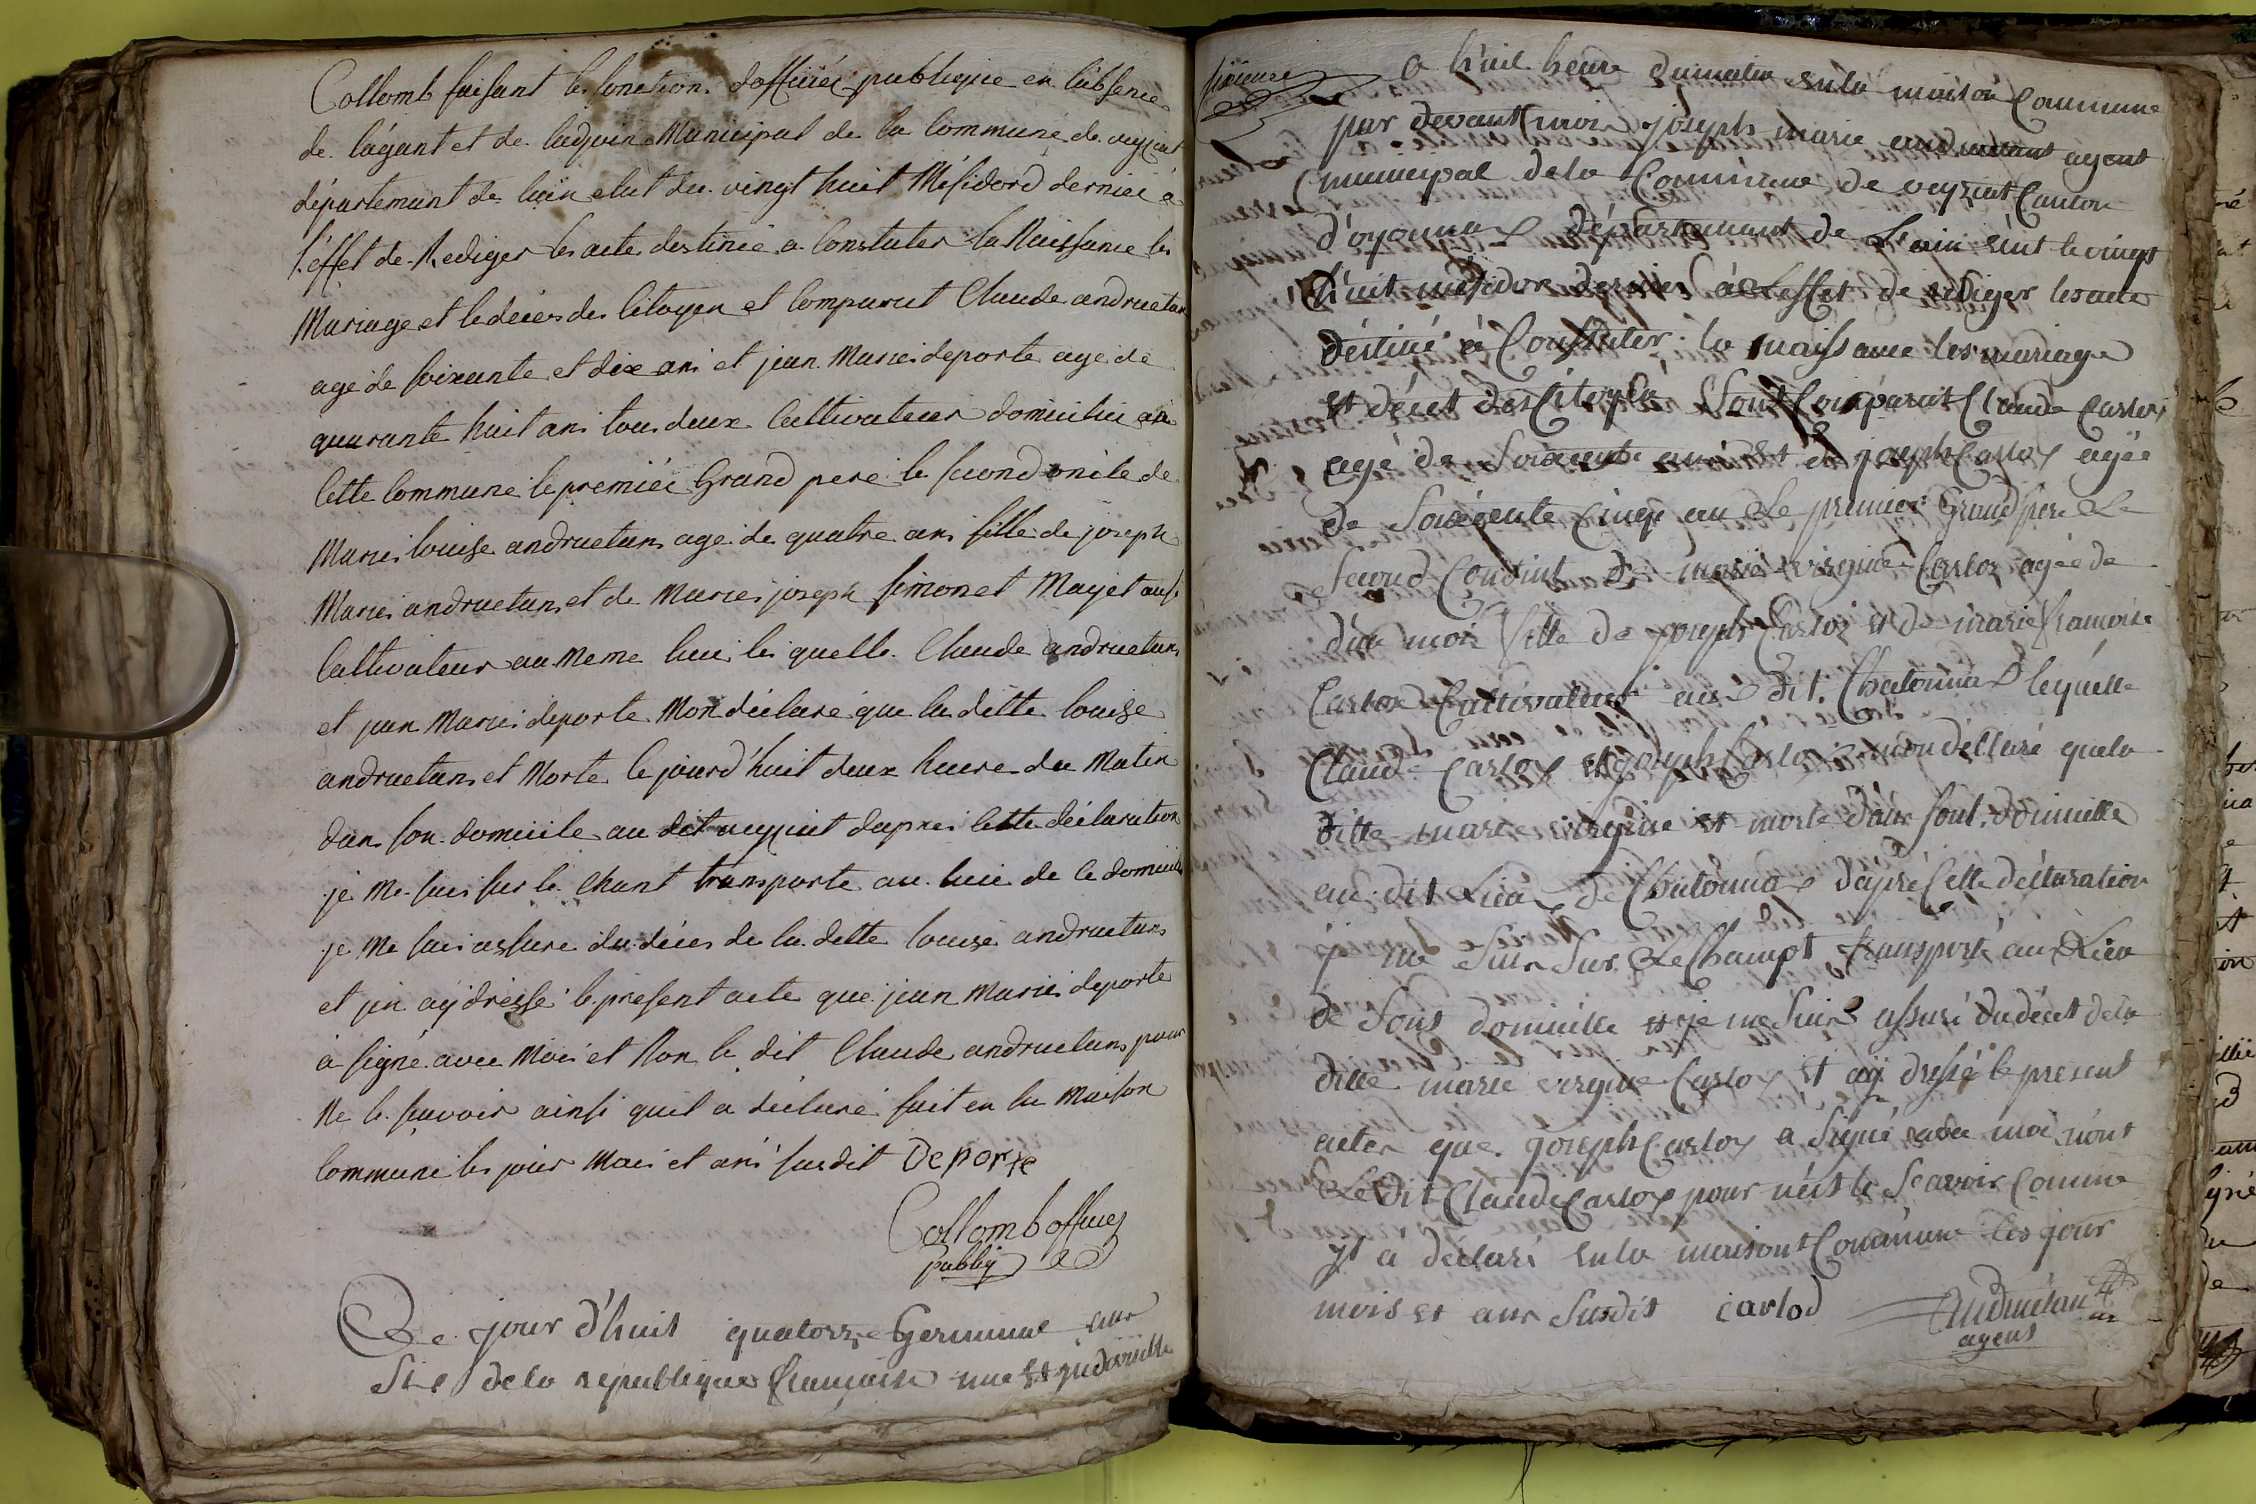 Collomb faisant les fonction dofficier publique en labsence
de lagant et de ladjoin Municipal de la Commune de veyziat
département de lain elut du vingt huit Mésidord dernier a
l'effet de Rediger les acte destinée a Constater la Naissance les
Mariage et le décès des Citoyen et Comparut Claude andruetan
agé de soixante et dix ans et jean Marie deporte age de
quarante huit ans tous deux Cultivateur domicilié en
Cette Commune le premiér Grand pere le second oncle de
Marie louise andruetans age de quatre ans fille de joseph
Marie andruetans et de Marie joseph simonet Mayet aussi
Cultivateur au Meme lieu les quelle Claude andruetans
et jean Marie deporte Mon déclaré que la ditte louise
andruetans et Morte le jourd'huit deux heure du Matin
dans son domicile au dit veyziat dapres Cette déclaration
je Me suis sur le Chant transporte au lieu de Ce domicile
je Me suis assure du décès de la ditte louise andruetans
et jen ay dressé le present acte que jean Marie deporte
à signé avec Moi et Non le dit Claude andruetans pour
Ne le savoir ainsi quil a déclaré fait en la Maison
Commune les jour Mois et ans susdit Deporte
Collomb officier
publiq
Le jour d'huit quatorze Germinal ans
Six de la république française une et indivisible
à huit heure du matin en la maison Commune
par devant moi joseph marie andruetant agent
municipal de la Commune de veyziat Canton
d'oyonnax département de Lain élut le vingt
huit mésidor dernier à Leffet de rediger les acte
déstiné à Constater la naissance les mariage
et décet des Citoyen Sont Comparut Claude Carlox
agé de Soixante et joseph Carlox agée
de Soixgente Cinq an Le premier Grand pere Le
second Coudint de marie virginie Carlox agée de
dix mois fille de joseph Carlox et de marie francoise
Carlox Cultivateur au dit Chatonnax lequelle
Claude Carlox et joseph Carlox mon déclaré quela
ditte marie virginie et morte dans sont domicille
au dit Lieu de Chatonnax dapré Cette déclaration
je me suis sur Le Champt transporté au Lieu
de sont domicille et je me suis assuré du décet de la
ditte marie virginie Carlox et ay dressé le present
acter que joseph Carlox a Signé avec moi nont
Le dit Claude Carlox pour nest le Scavoir Comme
yl à déclaré en la maisont Commune les jour
mois et ans susdit carlod Andruétan
agent